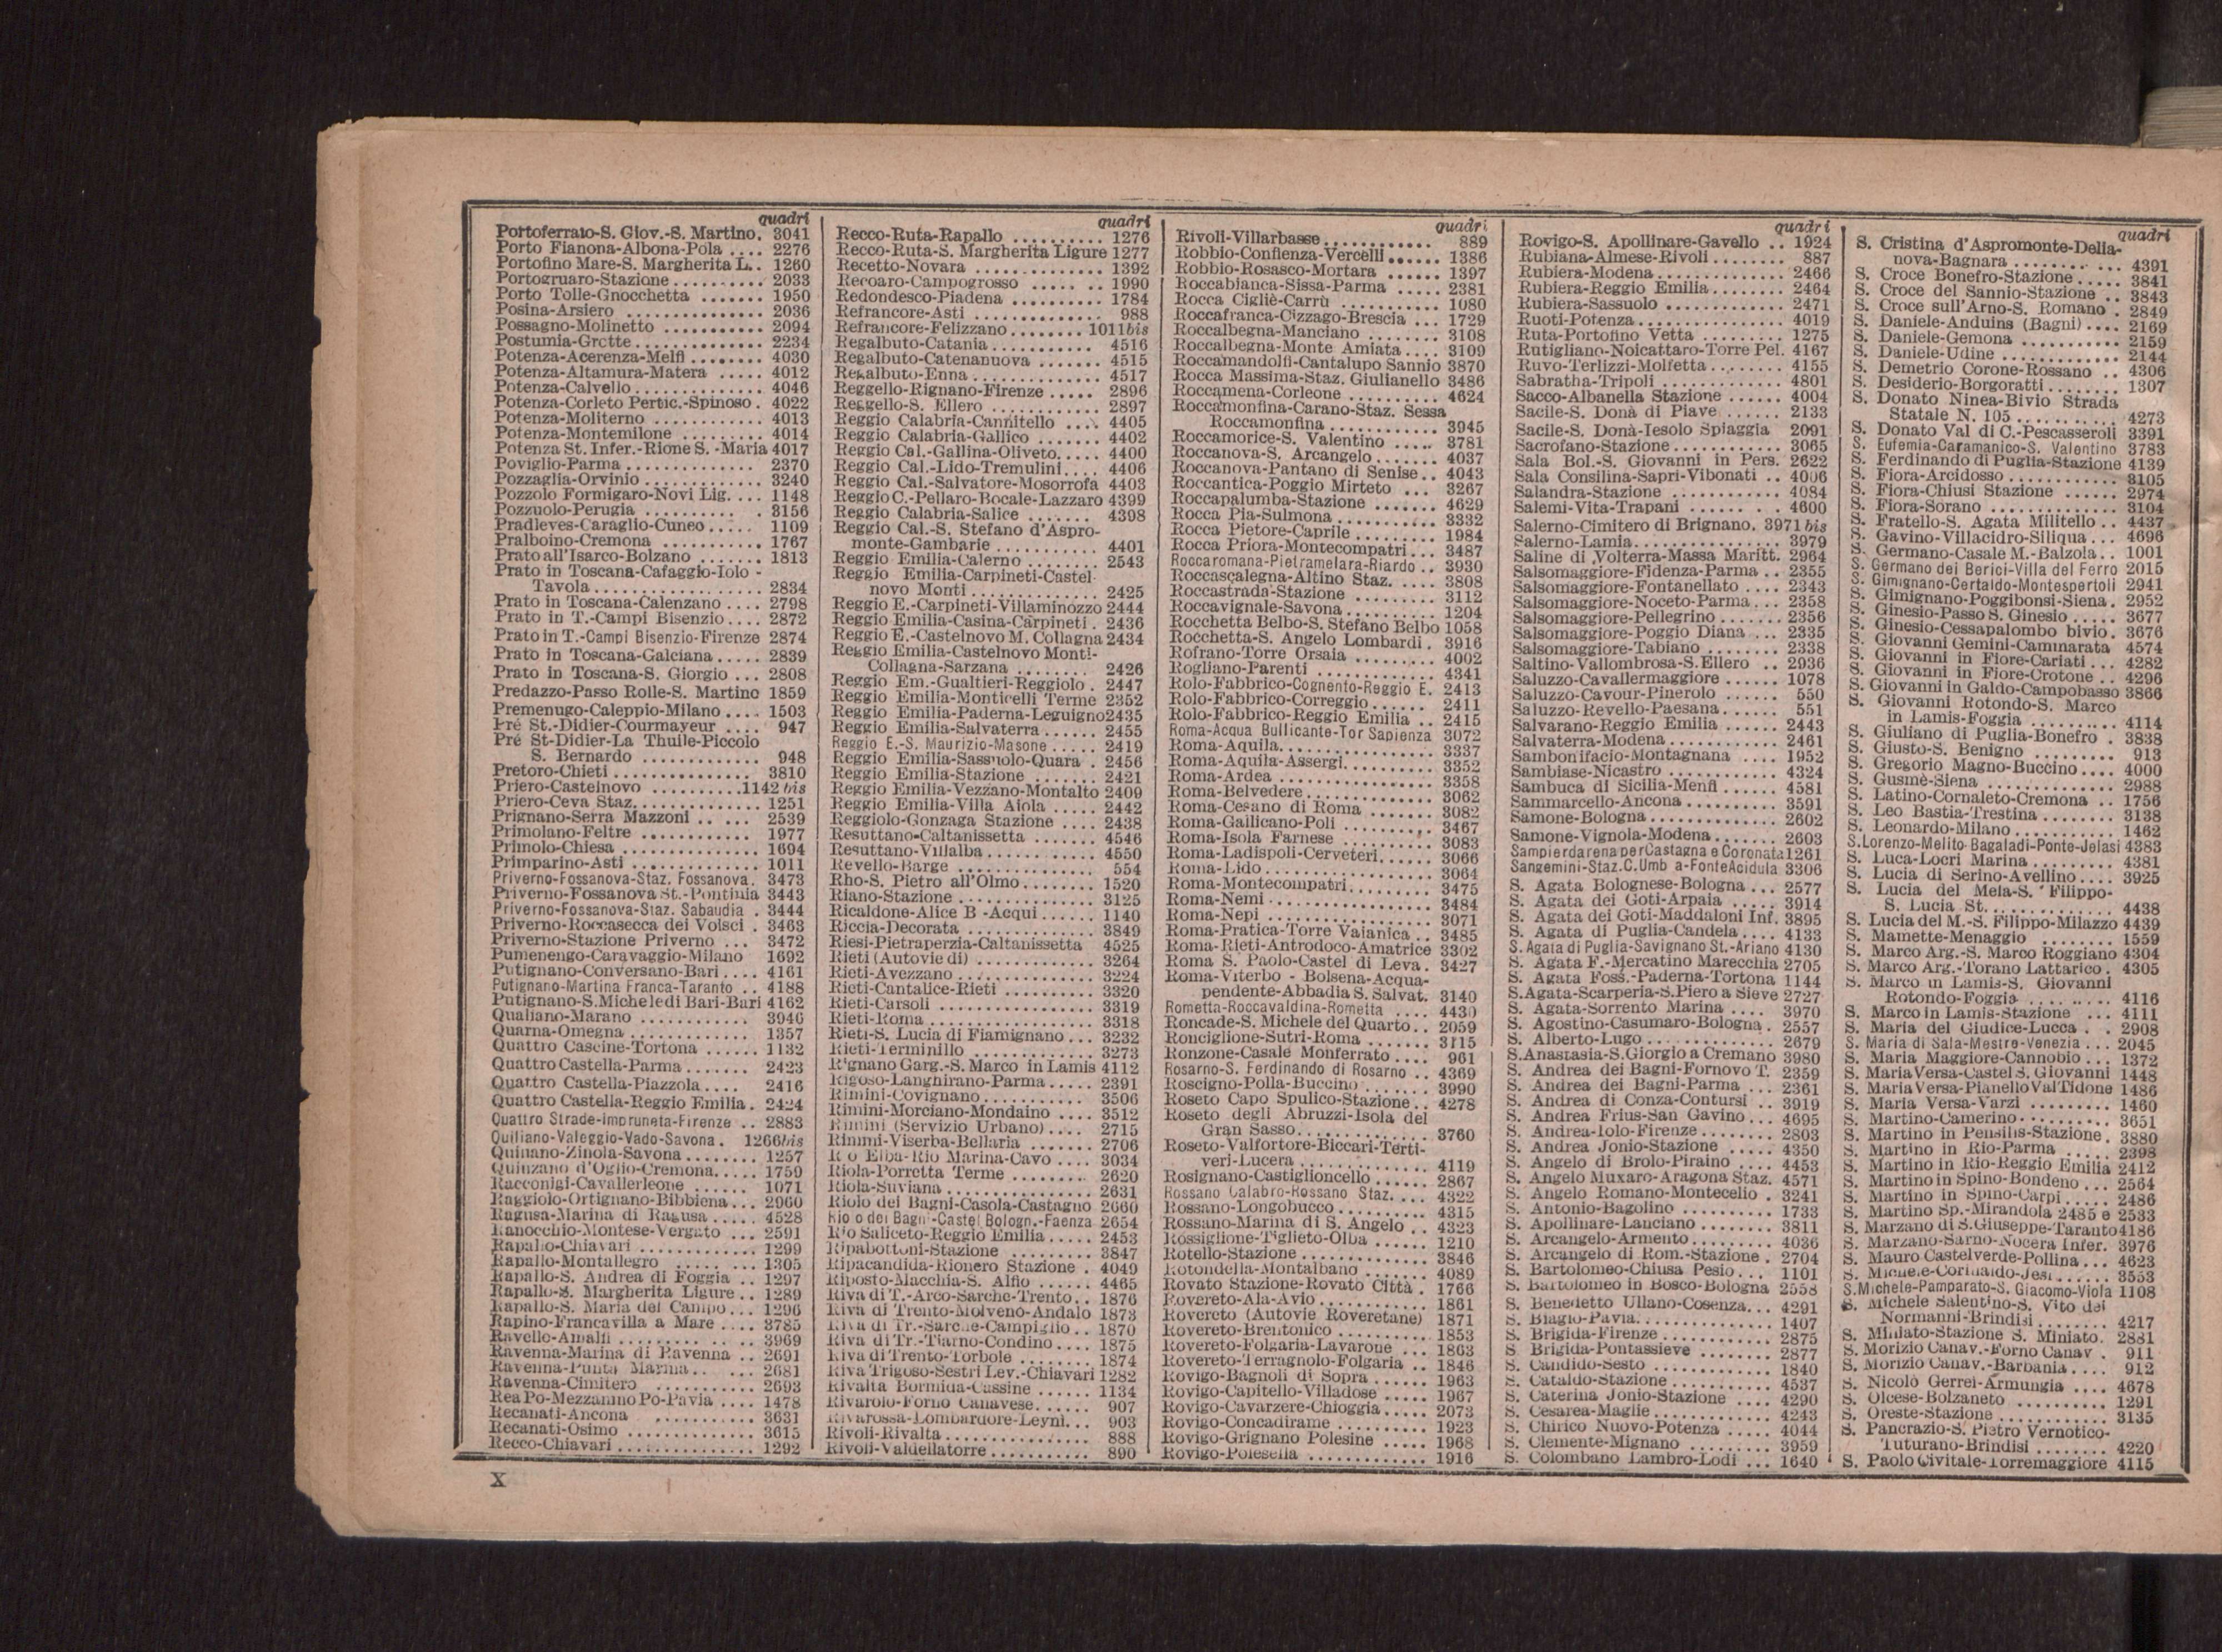 quadri
Portoferraio-S. Giov.-S. Martino. 3041
Porto Fianona-Albona-Pola .... 2276
Portofino Mare-S. Margherita L.. 1260
Portogruaro-Stazione .......... 2033
Porto Tolle-Gnocchetta ....... 1950
Posina-Arsiero ............... 2036
Possagno-Molinetto ........... 2094
Postumia-Grotte .............. 2234
Potenza-Acerenza-Melfi ........ 4030
Potenza-Altamura-Matera ..... 4012
Potenza-Calvello .............. 4046
Potenza-Corleto Pertic.-Spinoso . 4022
Potenza-Moliterno ............ 4013
Potenza-Montemilone ......... 4014
Potenza St. Infer.-Rione S. -Maria 4017
Poviglio-Parma ............... 2370
Pozzaglia-Orvinio ............. 3240
Pozzolo Formigaro-Novi Lig. ... 1148
Pozzuolo-Perugia .......... . 3156
Pradleves-Caraglio-Cuneo ..... 1109
Pralboino-Cremona ........... 1767
Prato all'Isarco-Bolzano ....... 1813
Prato in Toscana-Cafaggio-Iolo -
Tavola .................. 2834
Prato in Toscana-Calenzano .... 2798
Prato in T.-Campi Bisenzio .... 2872
Prato in T.-Campi Bisenzio-Firenze 2874
Prato in Toscana-Galciana ..... 2839
Prato in Toscana-S. Giorgio ... 2808
Predazzo-Passo Rolle-S. Martino 1859
Premenugo-Caleppio-Milano .... 1503
Pré St.-Didier-Courmayeur .... 947
Pré St-Didier-La Thuile-Piccolo
S. Bernardo ............. 948
Pretoro-Chieti ................. 3810
Priero-Castelnovo ..........1142 bis
Priero-Ceva Staz. ............. 1251
Prignano-Serra Mazzoni .. ... 2539
Primolano-Feltre ............ 1977
Primolo-Chiesa ............... 1694
Primparino-Asti .............. 1011
Priverno-Fossanova-Staz. Fossanova. 3473
Priverno-Fossanova St.-Pontinia 3443
Priverno-Fossanova-Staz. Sabaudia . 3444
Priverno-Roccasecca dei Volsci . 3463
Priverno-Stazione Priverno ... 3472
Pumenengo-Caravaggio-Milano 1692
Putignano-Conversano-Bari .... 4161
Putignano-Martina Franca-Taranto .. 4188
Putignano-S. Michele di Bari-Bari 4162
Qualiano-Marano ............ 3946
Quarna-Omegna ............. 1357
Quattro Cascine-Tortona ...... 1132
Quattro Castella-Parma ....... 2423
Quattro Castella-Piazzola .... 2416
Quattro Castella-Reggio Emilia . 2424
Quattro Strade-Impruneta-Firenze .. 2883
Quiliano-Valeggio-Vado-Savona . 1266bis
Quiliano-Zinola-Savona ........ 1257
Quinzano d'Oglio-Cremona .... 1759
Racconigi-Cavallerleone ...... 1071
Raggiolo-Ortignano-Bibbiena ... 2960
Ragusa-Marina di Ragusa ..... 4528
Ranocchio-Montese-Vergato ... 2591
Rapallo-Chiavari ............. 1299
Rapallo-Montallegro ..... ... 1305
Rapallo-S. Andrea di Foggia .. 1297
Rapallo-S. Margherita Ligure .. 1289
Rapallo-S. Maria del Campo ... 1296
Rapino-Francavilla a Mare .... 3785
Ravello-Amalfi ........ .. .. 3969
Ravenna-Marina di Ravenna .. 2691
Ravenna-Punta Marina .. ... 2681
Ravenna-Cimitero ........... 2693
Rea Po-Mezzanino Po-Pavia .... 1478
Recanati-Ancona ........... 3631
Recanati-Osimo .............. 3615
Recco-Chiavari ............... 1292
quadri
Recco-Ruta-Rapallo .......... 1276
Recco-Ruta-S. Margherita Ligure 1277
Recetto-Novara .............. 1392
Recoaro-Campogrosso ..... .. 1990
Redondesco-Piadena .......... 1784
Refrancore-Asti .............. 988
Refrancore-Felizzano ........ 1011bis
Regalbuto-Catania ........... 4516
Regalbuto-Catenanuova ....... 4515
Regalbuto-Enna .............. 4517
Reggello-Rignano-Firenze ..... 2896
Reggello-S. Ellero ............ 2897
Reggio Calabria-Cannitello .... 4405
Reggio Calabria-Gallico ....... 4402
Reggio Cal.-Gallina-Oliveto..... 4400
Reggio Cal.-Lido-Tremulini .... 4406
Reggio Cal.-Salvatore-Mosorrofa 4403
Reggio C.-Pellaro-Bocale-Lazzaro 4399
Reggio Calabria-Salice ....... 4398
Reggio Cal.-S. Stefano d'Aspro-
monte-Gambarie ........... 4401
Reggio Emilia-Calerno ........ 2543
Reggio Emilia-Carpineti-Castel-
novo Monti .............. 2425
Reggio E.-Carpineti-Villaminozzo 2444
Reggio Emilia-Casina-Carpineti . 2436
Reggio E.-Castelnovo M. Collagna 2434
Reggio Emilia-Castelnovo Monti-
Collagna-Sarzana ........ 2426
Reggio Em.-Gualtieri-Reggiolo . 2447
Reggio Emilia-Monticelli Terme 2352
Reggio Emilia-Paderna-Leguigno 2435
Reggio Emilia-Salvaterra ...... 2455
Reggio E.-S. Maurizio-Masone ..... 2419
Reggio Emilia-Sassuolo-Quara . 2456
Reggio Emilia-Stazione ....... 2421
Reggio Emilia-Vezzano-Montalto 2409
Reggio Emilia-Villa Aiola .... 2442
Reggiolo-Gonzaga Stazione .... 2438
Resuttano-Caltanissetta ....... 4546
Resuttano-Villalba ........... 4550
Revello-Barge ............... 554
Rho-S. Pietro all'Olmo ........ 1520
Riano-Stazione ............... 3125
Ricaldone-Alice B -Acqui ...... 1140
Riccia-Decorata .............. 3849
Riesi-Pietraperzia-Caltanissetta 4525
Rieti (Autovie di) ............. 3264
Rieti-Avezzano ............... 3224
Rieti-Cantalice-Rieti .......... 3320
Rieti-Carsoli ................. 3319
Rieti-Roma .................. 3318
Rieti-S. Lucia di Fiamignano ... 3232
Rieti-Terminillo .............. 3273
Rignano Garg.-S. Marco in Lamis 4112
Rigoso-Langhirano-Parma ..... 2391
Rimini-Covignano ............ 3506
Rimini-Morciano-Mondaino .... 3512
Rimini (Servizio Urbano) .... 2715
Rimini-Viserba-Bellaria ....... 2706
R o Elba-Rio Marina-Cavo .... 3034
Riola-Porretta Terme ........ 2620
Riola-Suviana ............... 2631
Riolo dei Bagni-Casola-Castagno 2660
Rio o dei Bagni-Castel Bologn.-Faenza 2654
Rio Saliceto-Reggio Emilia ..... 2453
Ripabottoni-Stazione ......... 3847
Ripacandida-Rionero Stazione . 4049
Riposto-Macchia-S. Alfio ...... 4465
Riva di T.-Arco-Sarche-Trento .. 1876
Riva di Trento-Molveno-Andalo 1873
Riva di Tr.-Sarche-Campiglio .. 1870
Riva di Tr.-Tiarno-Condino .... 1875
Riva di Trento-Torbole ........ 1874
Riva Trigoso-Sestri Lev.-Chiavari 1282
Rivalta Bormida-Cassine ...... 1134
Rivarolo-Forno Canavese ...... 907
Rivarossa-Lombardore-Leynì ... 903
Rivoli-Rivalta ................ 888
Rivoli-Valdellatorre ........... 890
quadri
Rivoli-Villarbasse ............ 889
Robbio-Confienza-Vercelli ...... 1386
Robbio-Rosasco-Mortara ...... 1397
Roccabianca-Sissa-Parma ..... 2381
Rocca Cigliè-Carrù .......... 1080
Roccafranca-Cizzago-Brescia ... 1729
Roccalbegna-Manciano ........ 3108
Roccalbegna-Monte Amiata .... 3109
Roccamandolfi-Cantalupo Sannio 3870
Rocca Massima-Staz. Giulianello 3486
Roccamena-Corleone ......... 4624
Roccamonfina-Carano-Staz. Sessa
Roccamonfina ............ 3945
Roccamorice-S. Valentino ..... 3781
Roccanova-S. Arcangelo ....... 4037
Roccanova-Pantano di Senise .. 4043
Roccantica-Poggio Mirteto ... 3267
Roccapalumba-Stazione ....... 4629
Rocca Pia-Sulmona ........... 3332
Rocca Pietore-Caprile ......... 1984
Rocca Priora-Montecompatri ... 3487
Roccaromana-Pietramelara-Riardo .. 3930
Roccascalegna-Altino Staz. .... 3808
Roccastrada-Stazione ........ 3112
Roccavignale-Savona .......... 1204
Rocchetta Belbo-S. Stefano Belbo 1058
Rocchetta-S. Angelo Lombardi . 3916
Rofrano-Torre Orsaia ......... 4002
Rogliano-Parenti ............. 4341
Rolo-Fabbrico-Cognento-Reggio E. 2413
Rolo-Fabbrico-Correggio ...... 2411
Rolo-Fabbrico-Reggio Emilia .. 2415
Roma-Acqua Bullicante-Tor Sapienza 3072
Roma-Aquila ................. 3337
Roma-Aquila-Assergi .......... 3352
Roma-Ardea ................ 3358
Roma-Belvedere .............. 3062
Roma-Cesano di Roma ....... 3082
Roma-Gallicano-Poli ......... 3467
Roma-Isola Farnese .......... 3083
Roma-Ladispoli-Cerveteri ...... 3066
Roma-Lido .................. 3064
Roma-Montecompatri ......... 3475
Roma-Nemi ................. 3484
Roma-Nepi ................. 3071
Roma-Pratica-Torre Vaianica .. 3485
Roma-Rieti-Antrodoco-Amatrice 3302
Roma S. Paolo-Castel di Leva . 3427
Roma-Viterbo - Bolsena-Acqua-
pendente-Abbadia S. Salvat. 3140
Rometta-Roccavaldina-Rometta .... 4430
Roncade-S. Michele del Quarto .. 2059
Ronciglione-Sutri-Roma ....... 3115
Ronzone-Casale Monferrato .... 961
Rosarno-S. Ferdinando di Rosarno .. 4369
Roscigno-Polla-Buccino ....... 3990
Roseto Capo Spulico-Stazione .. 4278
Roseto degli Abruzzi-Isola del
Gran Sasso .............. 3760
Roseto-Valfortore-Biccari-Terti-
veri-Lucera .............. 4119
Rosignano-Castiglioncello ...... 2867
Rossano Calabro-Rossano Staz. ... 4322
Rossano-Longobucco ......... 4315
Rossano-Marina di S. Angelo .. 4323
Rossiglione-Tiglieto-Olba ...... 1210
Rotello-Stazione .............. 3846
Rotondella-Montalbano ........ 4089
Rovato Stazione-Rovato Città . 1766
Rovereto-Ala-Avio ............ 1861
Rovereto (Autovie Roveretane) 1871
Rovereto-Brentonico .......... 1853
Rovereto-Folgaria-Lavarone ... 1863
Rovereto-Terragnolo-Folgaria .. 1846
Rovigo-Bagnoli di Sopra ...... 1963
Rovigo-Capitello-Villadose .... 1967
Rovigo-Cavarzere-Chioggia ..... 2073
Rovigo-Concadirame .......... 1923
Rovigo-Grignano Polesine ..... 1968
Rovigo-Polesella ............. 1916
quadri
Rovigo-S. Apollinare-Gavello .. 1924
Rubiana-Almese-Rivoli ........ 887
Rubiera-Modena .............. 2466
Rubiera-Reggio Emilia ........ 2464
Rubiera-Sassuolo ............. 2471
Ruoti-Potenza ................ 4019
Ruta-Portofino Vetta ......... 1275
Rutigliano-Noicattaro-Torre Pel. 4167
Ruvo-Terlizzi-Molfetta ........ 4155
Sabratha-Tripoli ............. 4801
Sacco-Albanella Stazione ...... 4004
Sacile-S. Donà di Piave ...... 2133
Sacile-S. Donà-Iesolo Spiaggia 2091
Sacrofano-Stazione ............ 3065
Sala Bol.-S. Giovanni in Pers. 2622
Sala Consilina-Sapri-Vibonati .. 4006
Salandra-Stazione ........... 4084
Salemi-Vita-Trapani ..... .. 4600
Salerno-Cimitero di Brignano. 3971 bis
Salerno-Lamia ................ 3979
Saline di Volterra-Massa Maritt. 2964
Salsomaggiore-Fidenza-Parma .. 2355
Salsomaggiore-Fontanellato .... 2343
Salsomaggiore-Noceto-Parma ... 2358
Salsomaggiore-Pellegrino ....... 2356
Salsomaggiore-Poggio Diana ... 2335
Salsomaggiore-Tabiano ....... 2338
Saltino-Vallombrosa-S. Ellero .. 2936
Saluzzo-Cavallermaggiore ...... 1078
Saluzzo-Cavour-Pinerolo ...... 550
Saluzzo-Revello-Paesana ...... 551
Salvarano-Reggio Emilia ...... 2443
Salvaterra-Modena ............ 2461
Sambonifacio-Montagnana .... 1952
Sambiase-Nicastro ............ 4324
Sambuca di Sicilia-Menfi ...... 4581
Sammarcello-Ancona .......... 3591
Samone-Bologna .............. 2602
Samone-Vignola-Modena ....... 2603
Sampierdarena per Castagna e Coronata 1261
Sangemini-Staz.C.Umb a-Fonte Acidula 3306
S. Agata Bolognese-Bologna ... 2577
S. Agata dei Goti-Arpaia ..... 3914
S. Agata dei Goti-Maddaloni Inf. 3895
S. Agata di Puglia-Candela .... 4133
S. Agata di Puglia-Savignano St.-Ariano 4130
S. Agata F.-Mercatino Marecchia 2705
S. Agata Foss.-Paderna-Tortona 1144
S. Agata-Scarperia-S. Piero a Sieve 2727
S. Agata-Sorrento Marina .... 3970
S. Agostino-Casumaro-Bologna . 2557
S. Alberto-Lugo .............. 2679
S. Anastasia-S. Giorgio a Cremano 3980
S. Andrea dei Bagni-Fornovo T. 2359
S. Andrea dei Bagni-Parma ... 2361
S. Andrea di Conza-Contursi .. 3919
S. Andrea Frius-San Gavino ... 4695
S. Andrea-Iolo-Firenze ........ 2803
S. Andrea Jonio-Stazione ..... 4350
S. Angelo di Brolo-Piraino .... 4453
S. Angelo Muxaro-Aragona Staz. 4571
S. Angelo Romano-Montecelio . 3241
S. Antonio-Bagolino .......... 1733
S. Apollinare-Lanciano ........ 3811
S. Arcangelo-Armento ........ 4036
S. Arcangelo di Rom.-Stazione . 2704
S. Bartolomeo-Chiusa Pesio ... 1101
S. Bartolomeo in Bosco-Bologna 2558
S. Benedetto Ullano-Cosenza ... 4291
S. Biagio-Pavia .............. 1407
S. Brigida-Firenze ............ 2875
S. Brigida-Pontassieve ........ 2877
S. Candido-Sesto ............. 1840
S. Cataldo-Stazione ........... 4537
S. Caterina Jonio-Stazione .... 4290
S. Cesarea-Maglie ............ 4243
S. Chirico Nuovo-Potenza ..... 4044
S. Clemente-Mignano ......... 3959
S. Colombano Lambro-Lodi ... 1640
quadri
S. Cristina d'Aspromonte-Delia-
nova-Bagnara ........ ... 4391
S. Croce Bonefro-Stazione ..... 3841
S. Croce del Sannio-Stazione .. 3843
S. Croce sull'Arno-S. Romano . 2849
S. Daniele-Anduins (Bagni) .... 2169
S. Daniele-Gemona .......... 2159
S. Daniele-Udine ............ 2144
S. Demetrio Corone-Rossano .. 4306
S. Desiderio-Borgoratti ........ 1307
S. Donato Ninea-Bivio Strada
Statale N. 105 ............ 4273
S. Donato Val di C.-Pescasseroli 3391
S. Eufemia-Caramanico-S. Valentino 3783
S. Ferdinando di Puglia-Stazione 4139
S. Fiora-Arcidosso ............ 3105
S. Fiora-Chiusi Stazione ...... 2974
S. Fiora-Sorano .............. 3104
S. Fratello-S. Agata Militello .. 4437
S. Gavino-Villacidro-Siliqua ... 4696
S. Germano-Casale M.-Balzola .. 1001
S. Germano dei Berici-Villa del Ferro 2015
S. Gimignano-Certaldo-Montespertoli 2941
S. Gimignano-Poggibonsi-Siena . 2952
S. Ginesio-Passo S. Ginesio ..... 3677
S. Ginesio-Cessapalombo bivio . 3676
S. Giovanni Gemini-Cammarata 4574
S. Giovanni in Fiore-Cariati ... 4282
S. Giovanni in Fiore-Crotone .. 4296
S. Giovanni in Galdo-Campobasso 3866
S. Giovanni Rotondo-S. Marco
in Lamis-Foggia .......... 4114
S. Giuliano di Puglia-Bonefro . 3838
S. Giusto-S. Benigno ......... 913
S. Gregorio Magno-Buccino .... 4000
S. Gusmè-Siena .............. 2988
S. Latino-Cornaleto-Cremona .. 1756
S. Leo Bastia-Trestina ........ 3138
S. Leonardo-Milano ........... 1462
S. Lorenzo-Melito-Bagaladi-Ponte-Jelasi 4383
S. Luca-Locri Marina ......... 4381
S. Lucia di Serino-Avellino .... 3925
S. Lucia del Mela-S. Filippo-
S. Lucia St. .............. 4438
S. Lucia del M.-S. Filippo-Milazzo 4439
S. Mamette-Menaggio ........ 1559
S. Marco Arg.-S. Marco Roggiano 4304
S. Marco Arg.-Torano Lattarico . 4305
S. Marco in Lamis-S. Giovanni
Rotondo-Foggia .... ..... 4116
S. Marco in Lamis-Stazione ... 4111
S. Maria del Giudice-Lucca . . 2908
S. Maria di Sala-Mestre-Venezia ... 2045
S. Maria Maggiore-Cannobio ... 1372
S. Maria Versa-Castel S. Giovanni 1448
S. Maria Versa-Pianello Val Tidone 1486
S. Maria Versa-Varzi ......... 1460
S. Martino-Camerino .......... 3651
S. Martino in Pensilis-Stazione . 3880
S. Martino in Rio-Parma ..... 2398
S. Martino in Rio-Reggio Emilia 2412
S. Martino in Spino-Bondeno ... 2564
S. Martino in Spino-Carpi ..... 2486
S. Martino Sp.-Mirandola 2485 e 2533
S. Marzano di S. Giuseppe-Taranto 4186
S. Marzano-Sarno-Nocera Infer. 3976
S. Mauro Castelverde-Pollina ... 4623
S. Michele-Corinaldo-Jesi ...... 3553
S. Michele-Pamparato-S. Giacomo-Viola 1108
S. Michele Salentino-S. Vito dei
Normanni-Brindisi ........ 4217
S. Miniato-Stazione S. Miniato. 2881
S. Morizio Canav.-Forno Canav . 911
S. Morizio Canav.-Barbania .... 912
S. Nicolò Gerrei-Armungia .... 4678
S. Olcese-Bolzaneto .......... 1291
S. Oreste-Stazione ............ 3135
S. Pancrazio-S. Pietro Vernotico-
Tuturano-Brindisi ........ 4220
S. Paolo Civitale-Torremaggiore 4115
X